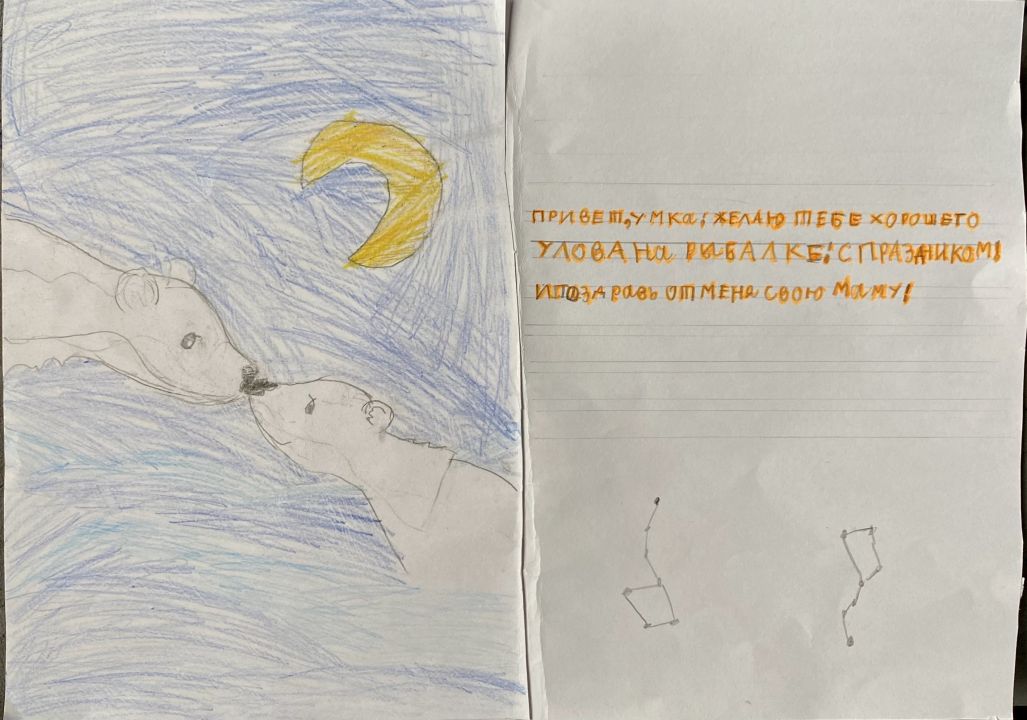 ПРИВЕТ, УМКа! ЖЕЛАЮ ТЕБЕ ХОРОШЕГО
УЛОВА На РЫБАЛКЕ! С ПРАЗДНИКОМ!
И ПОЗДРавЬ ОТ МЕНЯ СВОЮ МаМУ!